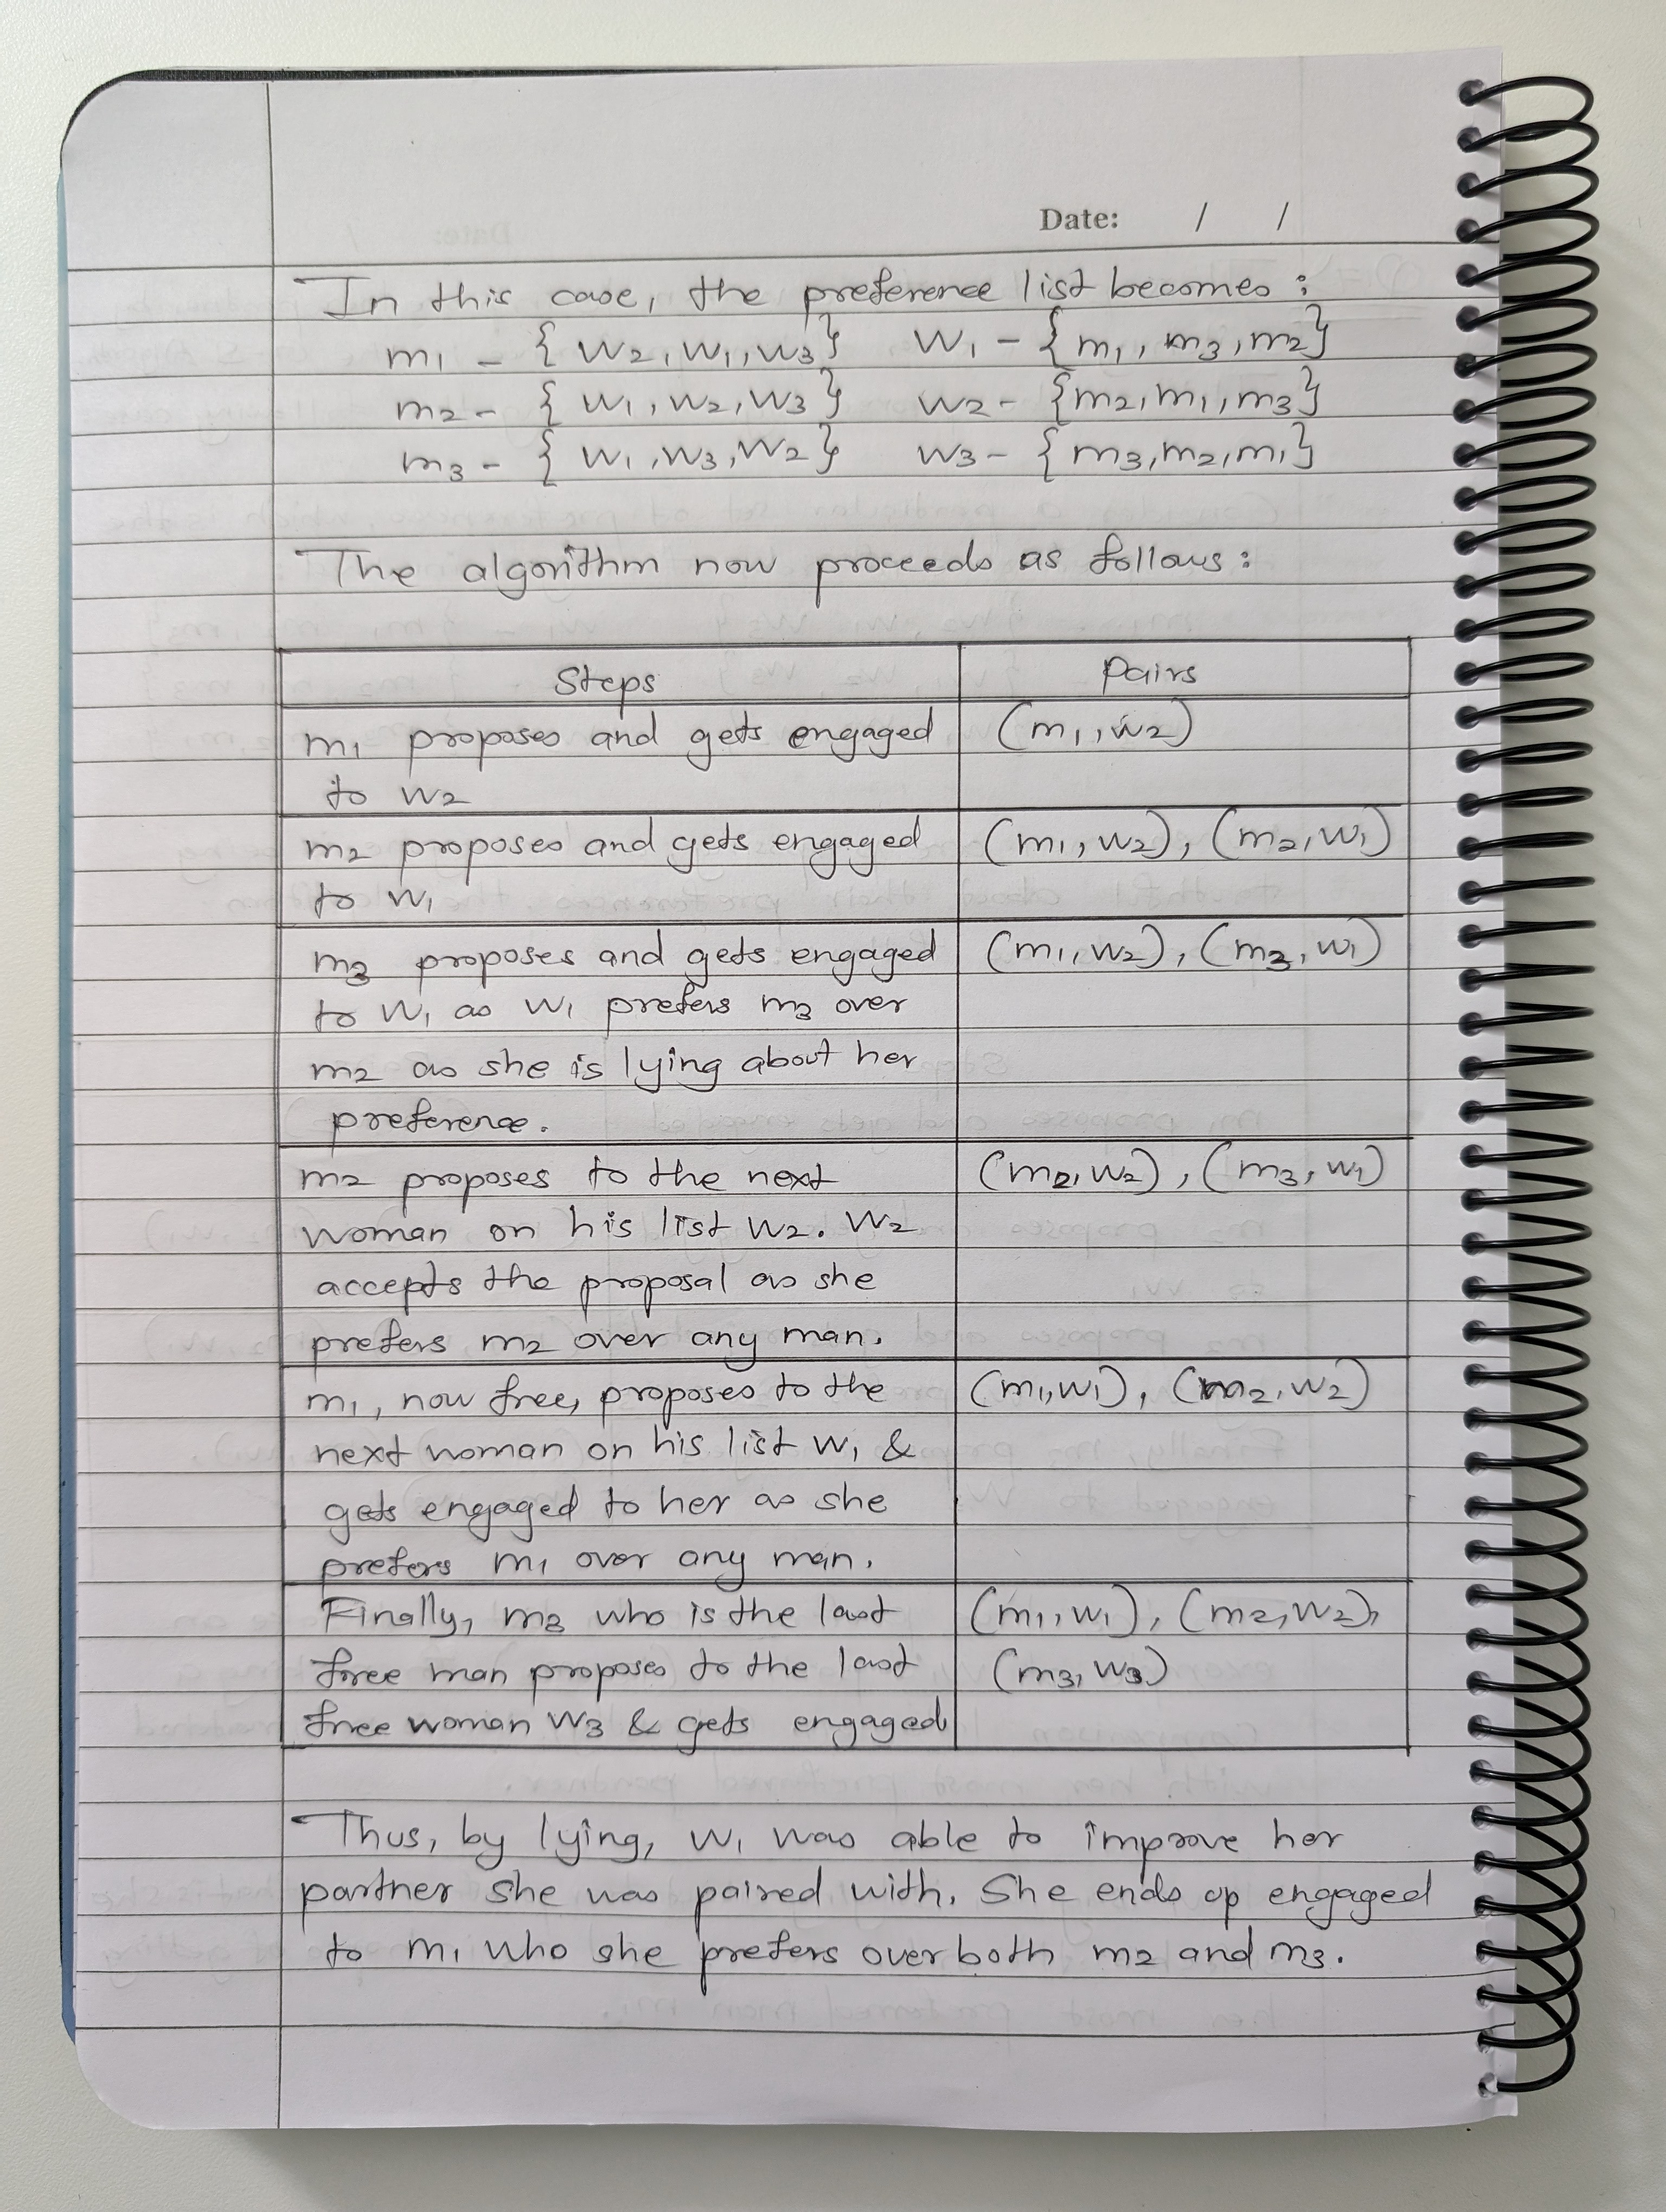 Date: / /
In this case, the preference list becomes :
m1 - { W2, W1, W3} W1 - { m1, m3, m2}
m2 - { W1, W2, W3} W2 - {m2, m1, m3}
m3 - { W1, W3, W2} W3 - { m3, m2, m1}
The algorithm now proceeds as follows :
Steps Pairs
m1 proposes and gets engaged (m1, w2)
to W2
m2 proposes and gets engaged (m1, W2), (m2, W1)
to W1
m3 proposes and gets engaged (m1, W2), (m3, W1)
to W1 as W1 prefers m3 over
m2 as she is lying about her
preference.
m2 proposes to the next (m2, W2), (m3, W1)
woman on his list W2. W2
accepts the proposal as she
prefers m2 over any man.
m1, now free, proposes to the (m1, W1), (m2, W2)
next woman on his list W1 &
gets engaged to her as she
prefers m1 over any man.
Finally, m3 who is the last (m1, W1), (m2, W2),
free man proposes to the last (m3, W3)
free woman W3 & gets engaged
Thus, by lying, W1 was able to improve her
partner she was paired with. She ends up engaged
to m1 who she prefers over both m2 and m3.